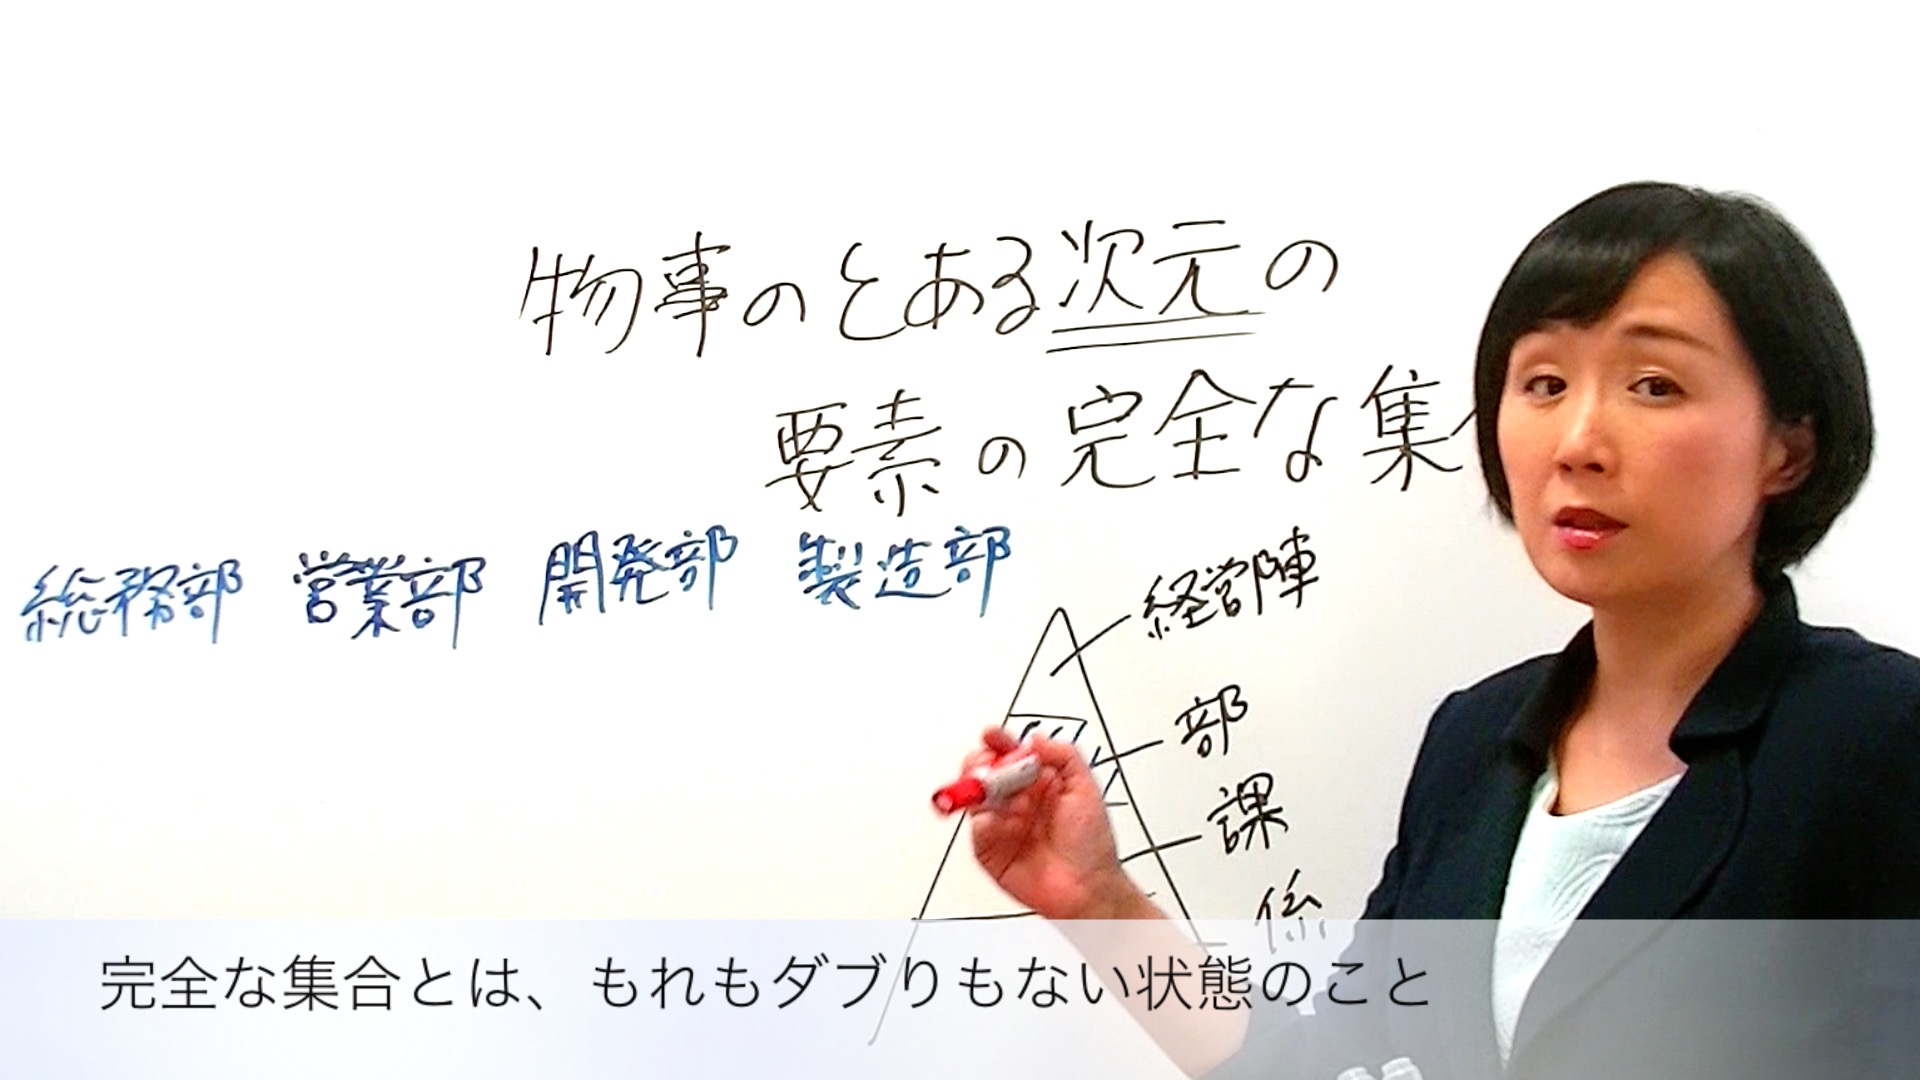 物事のとある次元の
要素の完全な集
総務部 営業部 開発部 製造部
経営陣
部
課
係
完全な集合とは、もれもダブりもない状態のこと